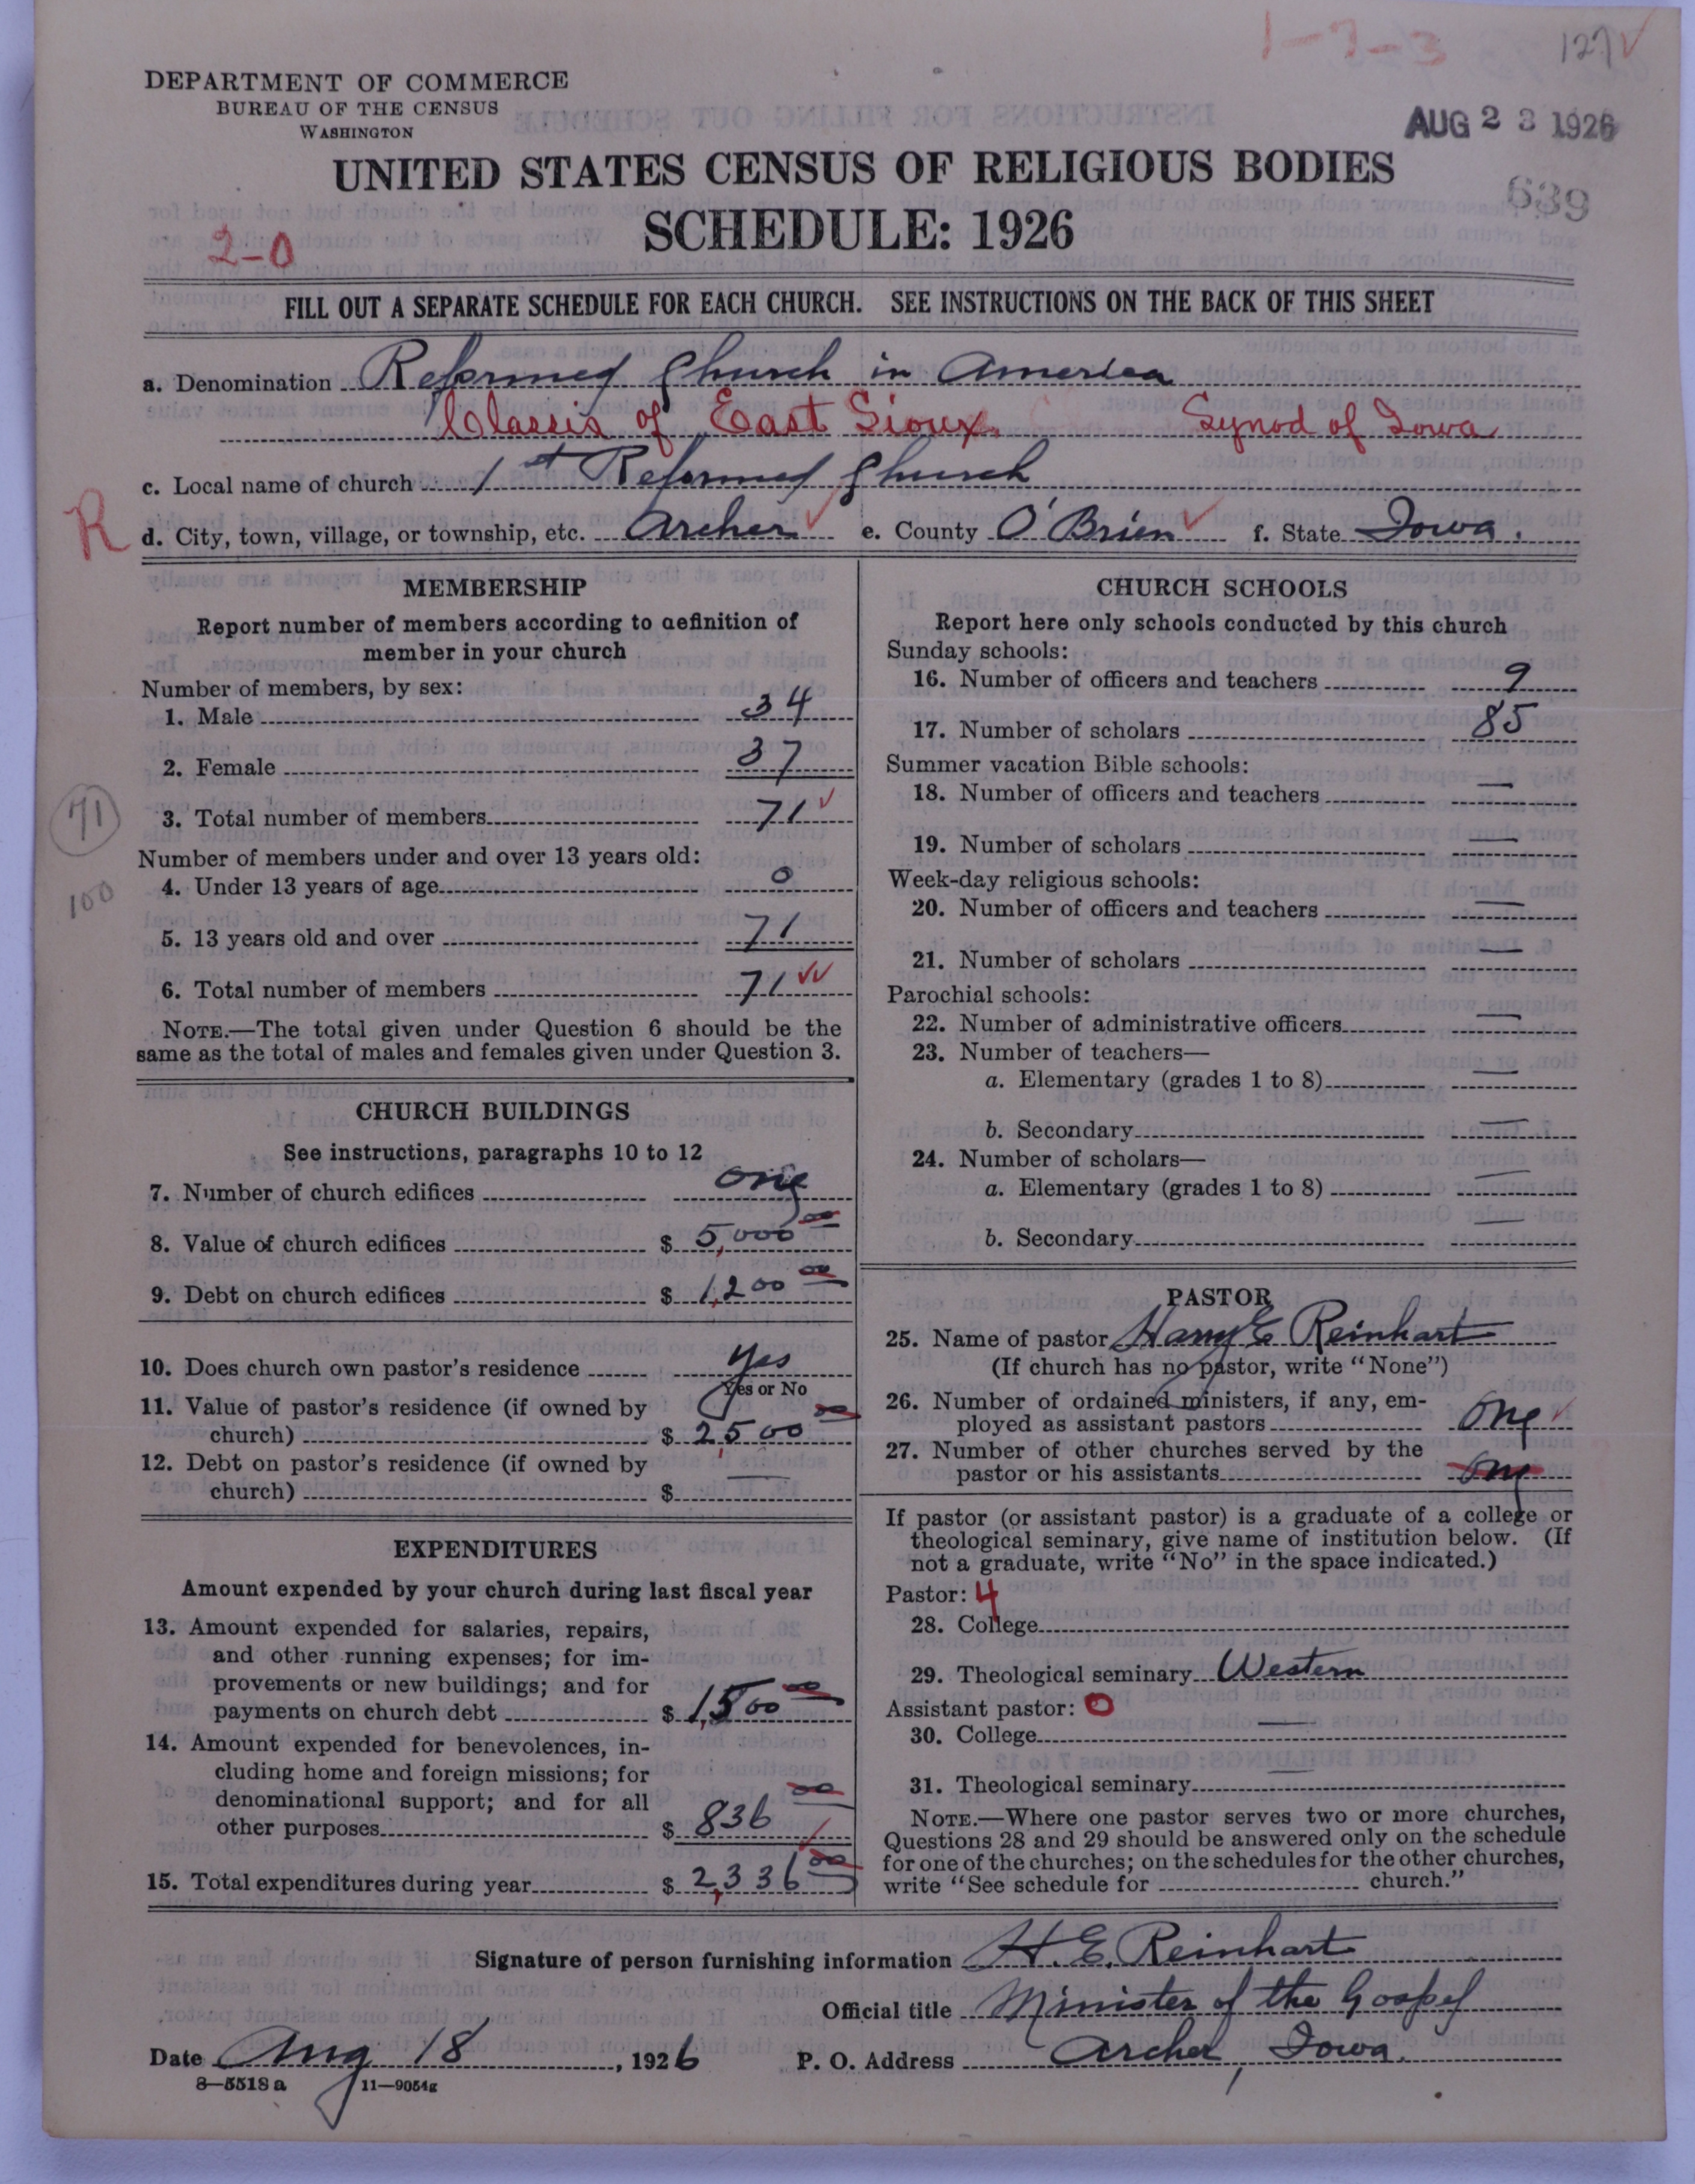 1-7-3 127
DEPARTMENT OF COMMERCE
BUREAU OF THE CENSUS
WASHINGTON
AUG 23 1926
UNITED STATES CENSUS OF RELIGIOUS BODIES
639
SCHEDULE: 1926
2-0
FILL OUT A SEPARATE SCHEDULE FOR EACH CHURCH. SEE INSTRUCTIONS ON THE BACK OF THIS SHEET
a. Denomination Reformed Church in America
Classis of East Sioux. Synod of Iowa
c. Local name of church 1st Reformed Church
R
d. City, town, village, or township, etc. Archer e. County O'Brien f. State Iowa.
MEMBERSHIP
Report number of members according to definition of
member in your church
Number of members, by sex:
1. Male 34
2. Female 37
71
3. Total number of members 71
Number of members under and over 13 years old:
4. Under 13 years of age 0
100
5. 13 years old and over 71
6. Total number of members 71
NOTE.—The total given under Question 6 should be the
same as the total of males and females given under Question 3.
CHURCH BUILDINGS
See instructions, paragraphs 10 to 12
7. Number of church edifices one
8. Value of church edifices $ 5,000 00
9. Debt on church edifices $ 1,200 00
10. Does church own pastor's residence yes
Yes or No
11. Value of pastor's residence (if owned by
church) $ 2,500 00
12. Debt on pastor's residence (if owned by
church) $ —
EXPENDITURES
Amount expended by your church during last fiscal year
13. Amount expended for salaries, repairs,
and other running expenses; for im-
provements or new buildings; and for
payments on church debt $ 1,500 00
14. Amount expended for benevolences, in-
cluding home and foreign missions; for
denominational support; and for all
other purposes $ 836 00
15. Total expenditures during year $ 2,336 00
CHURCH SCHOOLS
Report here only schools conducted by this church
Sunday schools:
16. Number of officers and teachers 9
17. Number of scholars 85
Summer vacation Bible schools:
18. Number of officers and teachers —
19. Number of scholars —
Week-day religious schools:
20. Number of officers and teachers —
21. Number of scholars —
Parochial schools:
22. Number of administrative officers —
23. Number of teachers—
a. Elementary (grades 1 to 8) —
b. Secondary —
24. Number of scholars—
a. Elementary (grades 1 to 8) —
b. Secondary —
PASTOR
25. Name of pastor Harry E Reinhart
(If church has no pastor, write "None")
26. Number of ordained ministers, if any, em-
ployed as assistant pastors one
27. Number of other churches served by the
pastor or his assistants one
If pastor (or assistant pastor) is a graduate of a college or
theological seminary, give name of institution below. (If
not a graduate, write "No" in the space indicated.)
Pastor: 4
28. College
29. Theological seminary Western
Assistant pastor: 0
30. College —
31. Theological seminary —
NOTE.—Where one pastor serves two or more churches,
Questions 28 and 29 should be answered only on the schedule
for one of the churches; on the schedules for the other churches,
write "See schedule for church."
Signature of person furnishing information H. E. Reinhart
Official title Minister of the Gospel
Date Aug 18, 1926 P. O. Address Archer, Iowa.
8—5518a 11—9054g